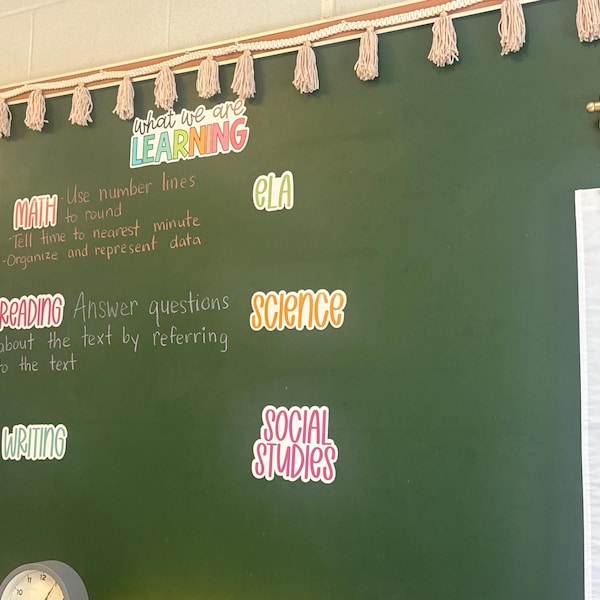 what we are
LEARNING
MATH · Use number lines
to round
· Tell time to nearest minute
· Organize and represent data
ELA
READING Answer questions
about the text by referring
to the text
SCIENCE
WRITING
SOCIAL
STUDIES
10 11 12 1